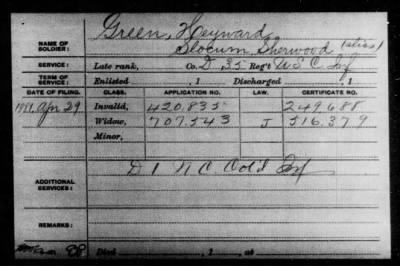 Green, Heyward
NAME OF SOLDIER: Slocum, Sherwood (alias)
SERVICE: Late rank, Co. D, 35 Reg't U S C Inf
TERM OF SERVICE: Enlisted , 1 Discharged , 1
DATE OF FILING. CLASS. APPLICATION NO. LAW. CERTIFICATE NO.
1881, Apr 29 Invalid, 420.835 249.688
Widow, 707.543 J 516.379
Minor,
ADDITIONAL SERVICES: D 1 N C Col'd Inf
REMARKS:
Died , 1 , at